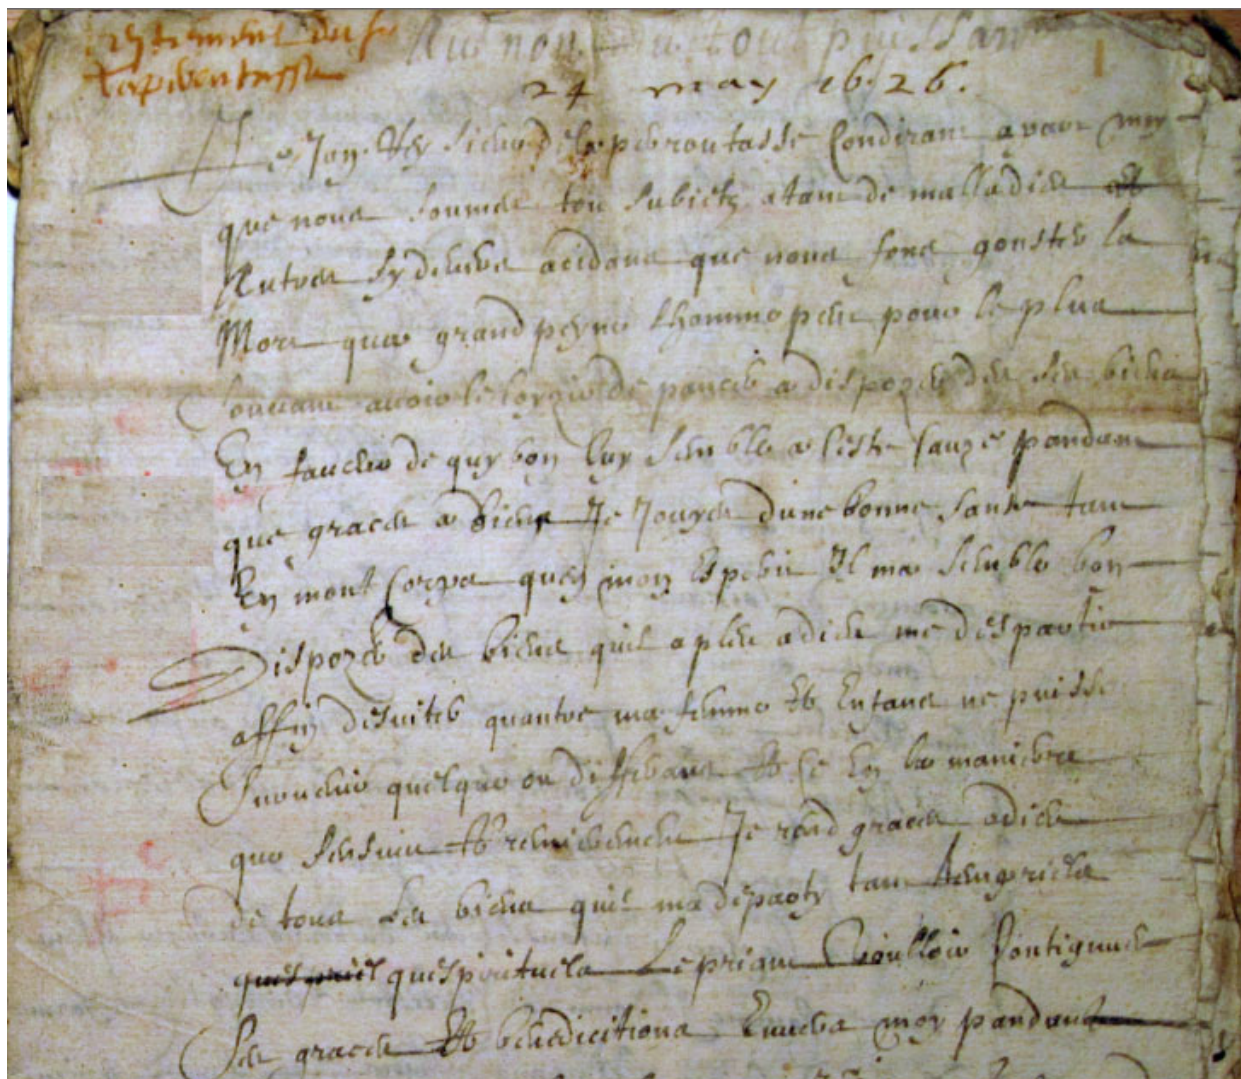 testement du sr
Au nom du tout puissan
24 may 1626.
Je Jan sieur de la peiroutasse Condirant avare moy
que nous sommes tou subietz atant de malladies et
Autres sy divers acidans que nous fons gouster la
Mort que a grand peyne lhomme peut pour le plus
souvant avoir le loyzir de pancer a dispozer des ses biens
En faveur de quy bon luy semble a ceste cauze pandant
que graces a dieu Je Jouyes dune bonne sante tant
En mont Corps quen mon Esperit Il ma semble bon
Dispozer des biens quil a pleu a dieu me despartir
affin desviter quantre ma femme et Enfans ne puisse
survenir quelque ou differans et ce En la maniere
que sensuit et premierement Je rend graces a dieu
de tous les biens quil ma departy tant temporiels
quespirituels Le priant Voulloir Contignuer
ses graces et benedictions Envers moy pandant